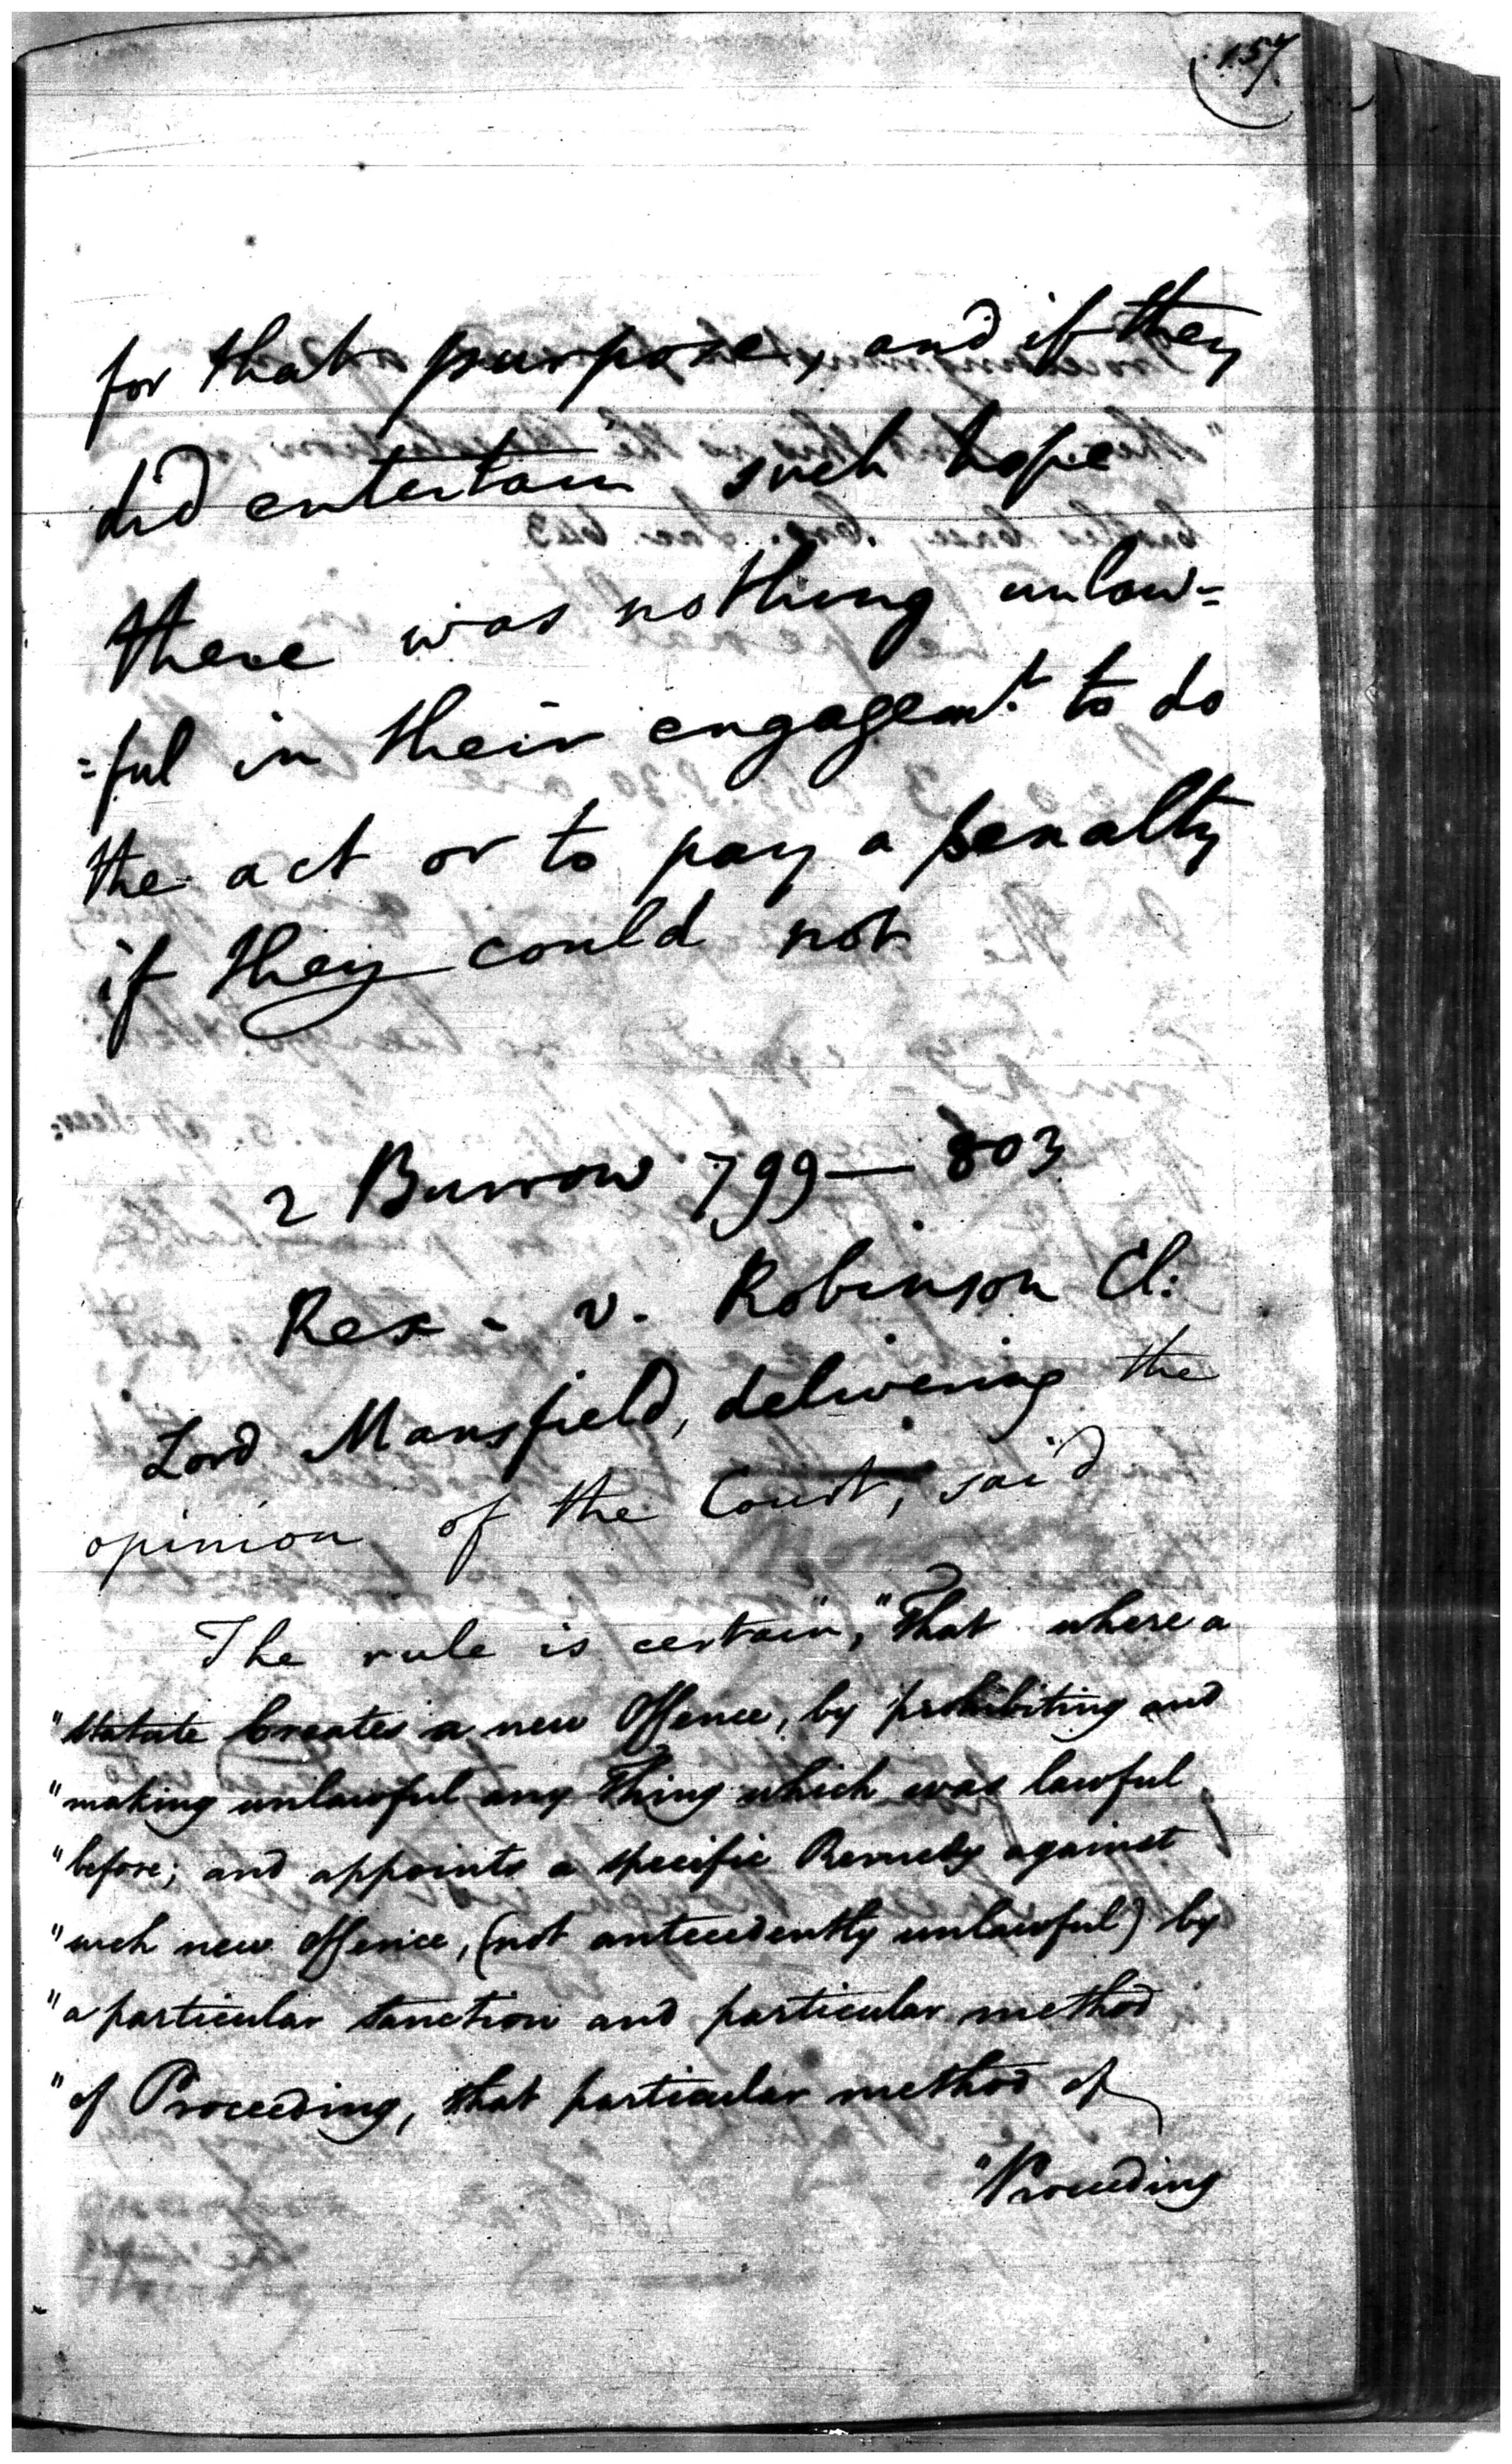 157.
for that purpose, and if they
did entertain such hope
there was nothing unlaw=
=ful in their engagem.t to do
the act or to pay a penalty
if they could not
2 Burrow 799 — 803
Rex - v. Robinson Cl:
Lord Mansfield, delivering the
opinion of the Court, said
The rule is certain", "That where a
"statute Creates a new Offence, by prohibiting and
"making unlawful any Thing which was lawful
"before; and appoints a specific Remedy against
"such new Offence, (not antecedently unlawful) by
"a particular Sanction and particular method
"of Proceeding, that particular method of
"Proceeding